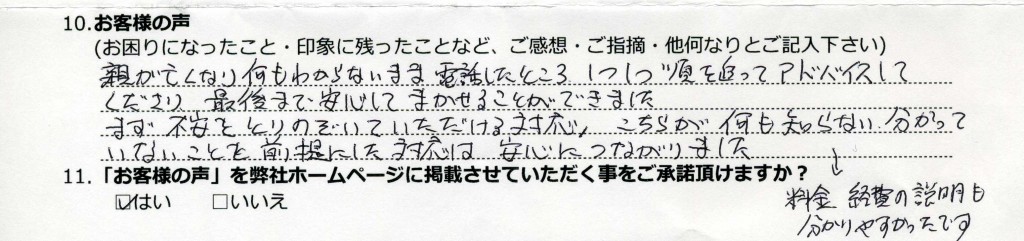 10.お客様の声
(お困りになったこと・印象に残ったことなど、ご感想・ご指摘・他何なりとご記入下さい)
親が亡くなり何もわからないまま電話したところ 1つ1つ順を追ってアドバイスして
くださり 最後まで安心してまかせることができました
まず不安をとりのぞいていただける対応、こちらが何も知らない 分かって
いないことを前提にした対応は 安心につながりました
11.「お客様の声」を弊社ホームページに掲載させていただく事をご承諾頂けますか?
☑はい □いいえ
↓
料金 経費の説明も
分かりやすかったです